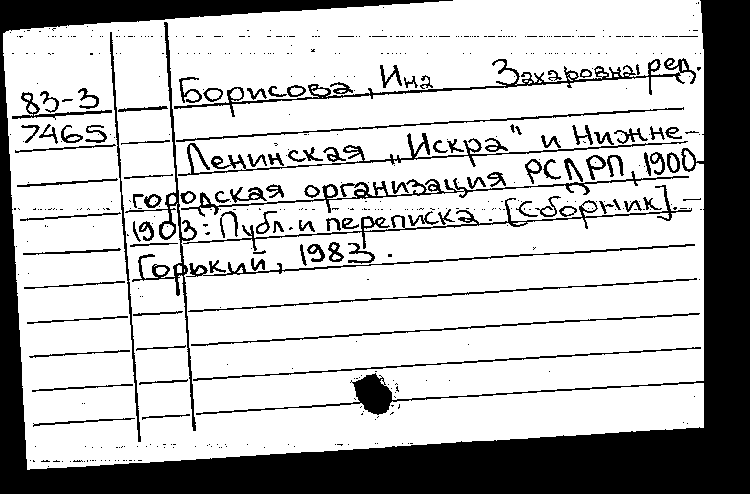 83-3
7465
Борисова, Инa Захаровна, ред.
Ленинская „Искра" и Нижне-
городская организация РСДРП, 1900-
1903: Публ. и переписка. [Сборник]. –
Горький, 1983.